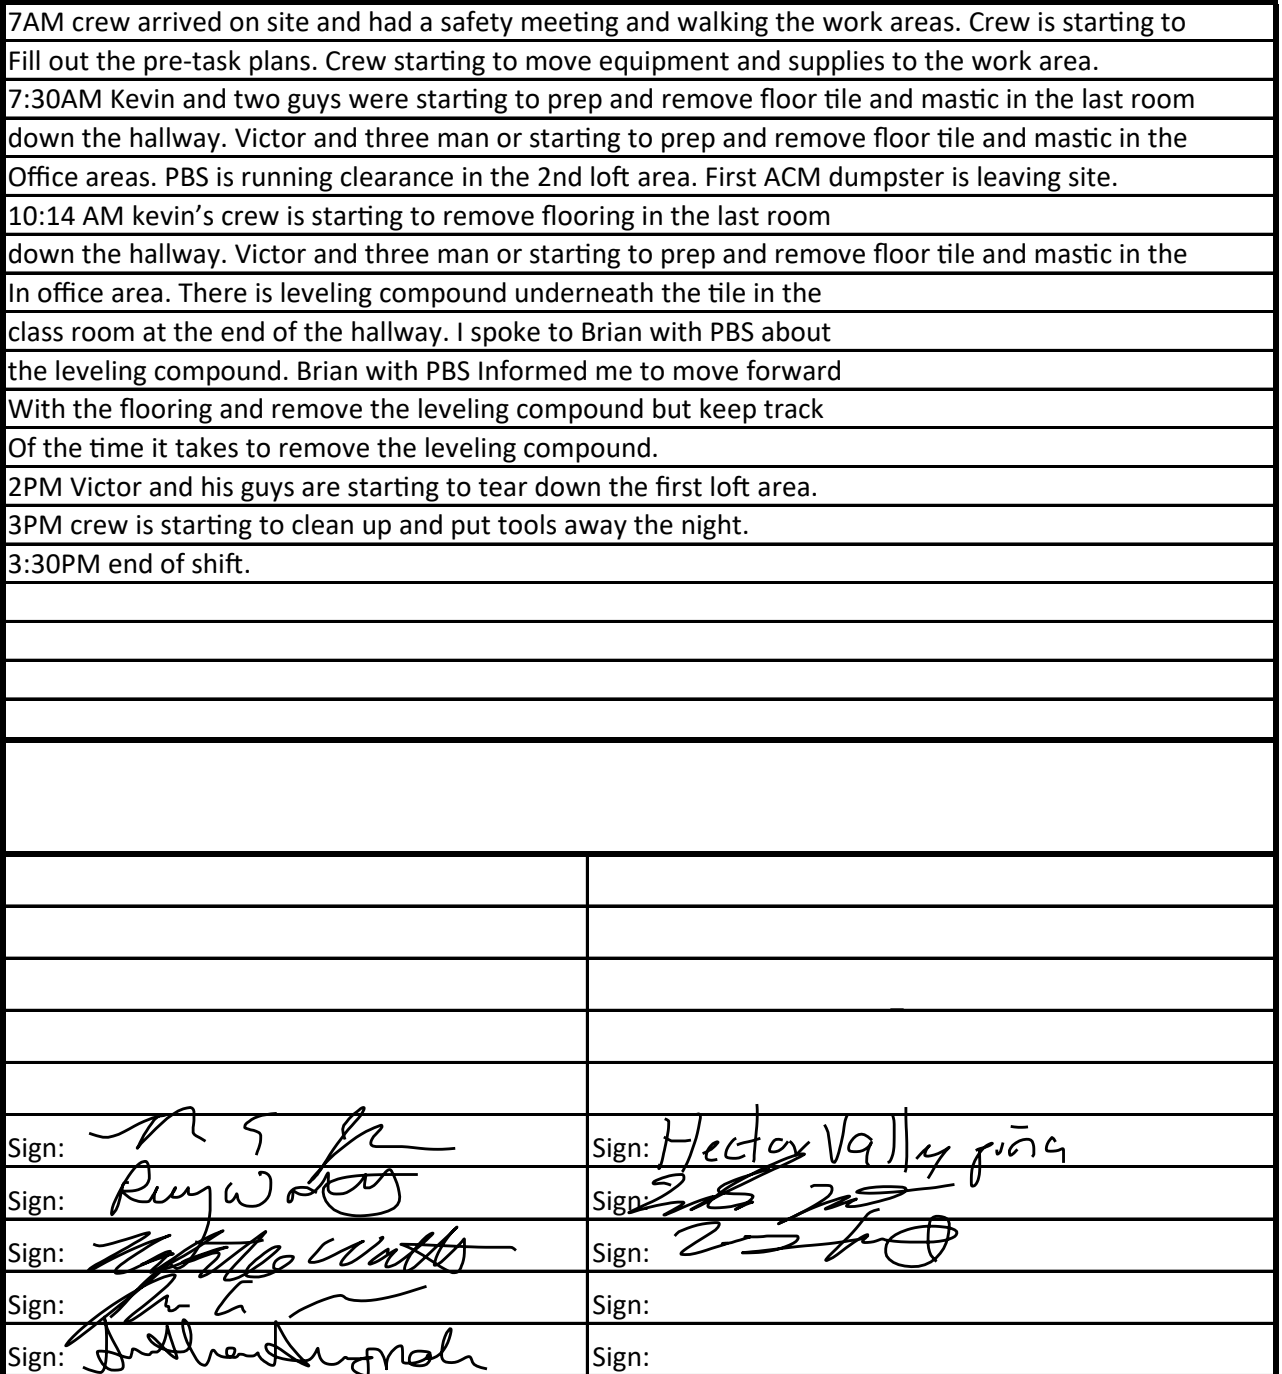 7AM crew arrived on site and had a safety meeting and walking the work areas. Crew is starting to
Fill out the pre-task plans. Crew starting to move equipment and supplies to the work area.
7:30AM Kevin and two guys were starting to prep and remove floor tile and mastic in the last room
down the hallway. Victor and three man or starting to prep and remove floor tile and mastic in the
Office areas. PBS is running clearance in the 2nd loft area. First ACM dumpster is leaving site.
10:14 AM kevin’s crew is starting to remove flooring in the last room
down the hallway. Victor and three man or starting to prep and remove floor tile and mastic in the
In office area. There is leveling compound underneath the tile in the
class room at the end of the hallway. I spoke to Brian with PBS about
the leveling compound. Brian with PBS Informed me to move forward
With the flooring and remove the leveling compound but keep track
Of the time it takes to remove the leveling compound.
2PM Victor and his guys are starting to tear down the first loft area.
3PM crew is starting to clean up and put tools away the night.
3:30PM end of shift.
Sign: Sign: Hector Vally
Sign: Sign:
Sign: Watts Sign:
Sign: Sign:
Sign: Sign: